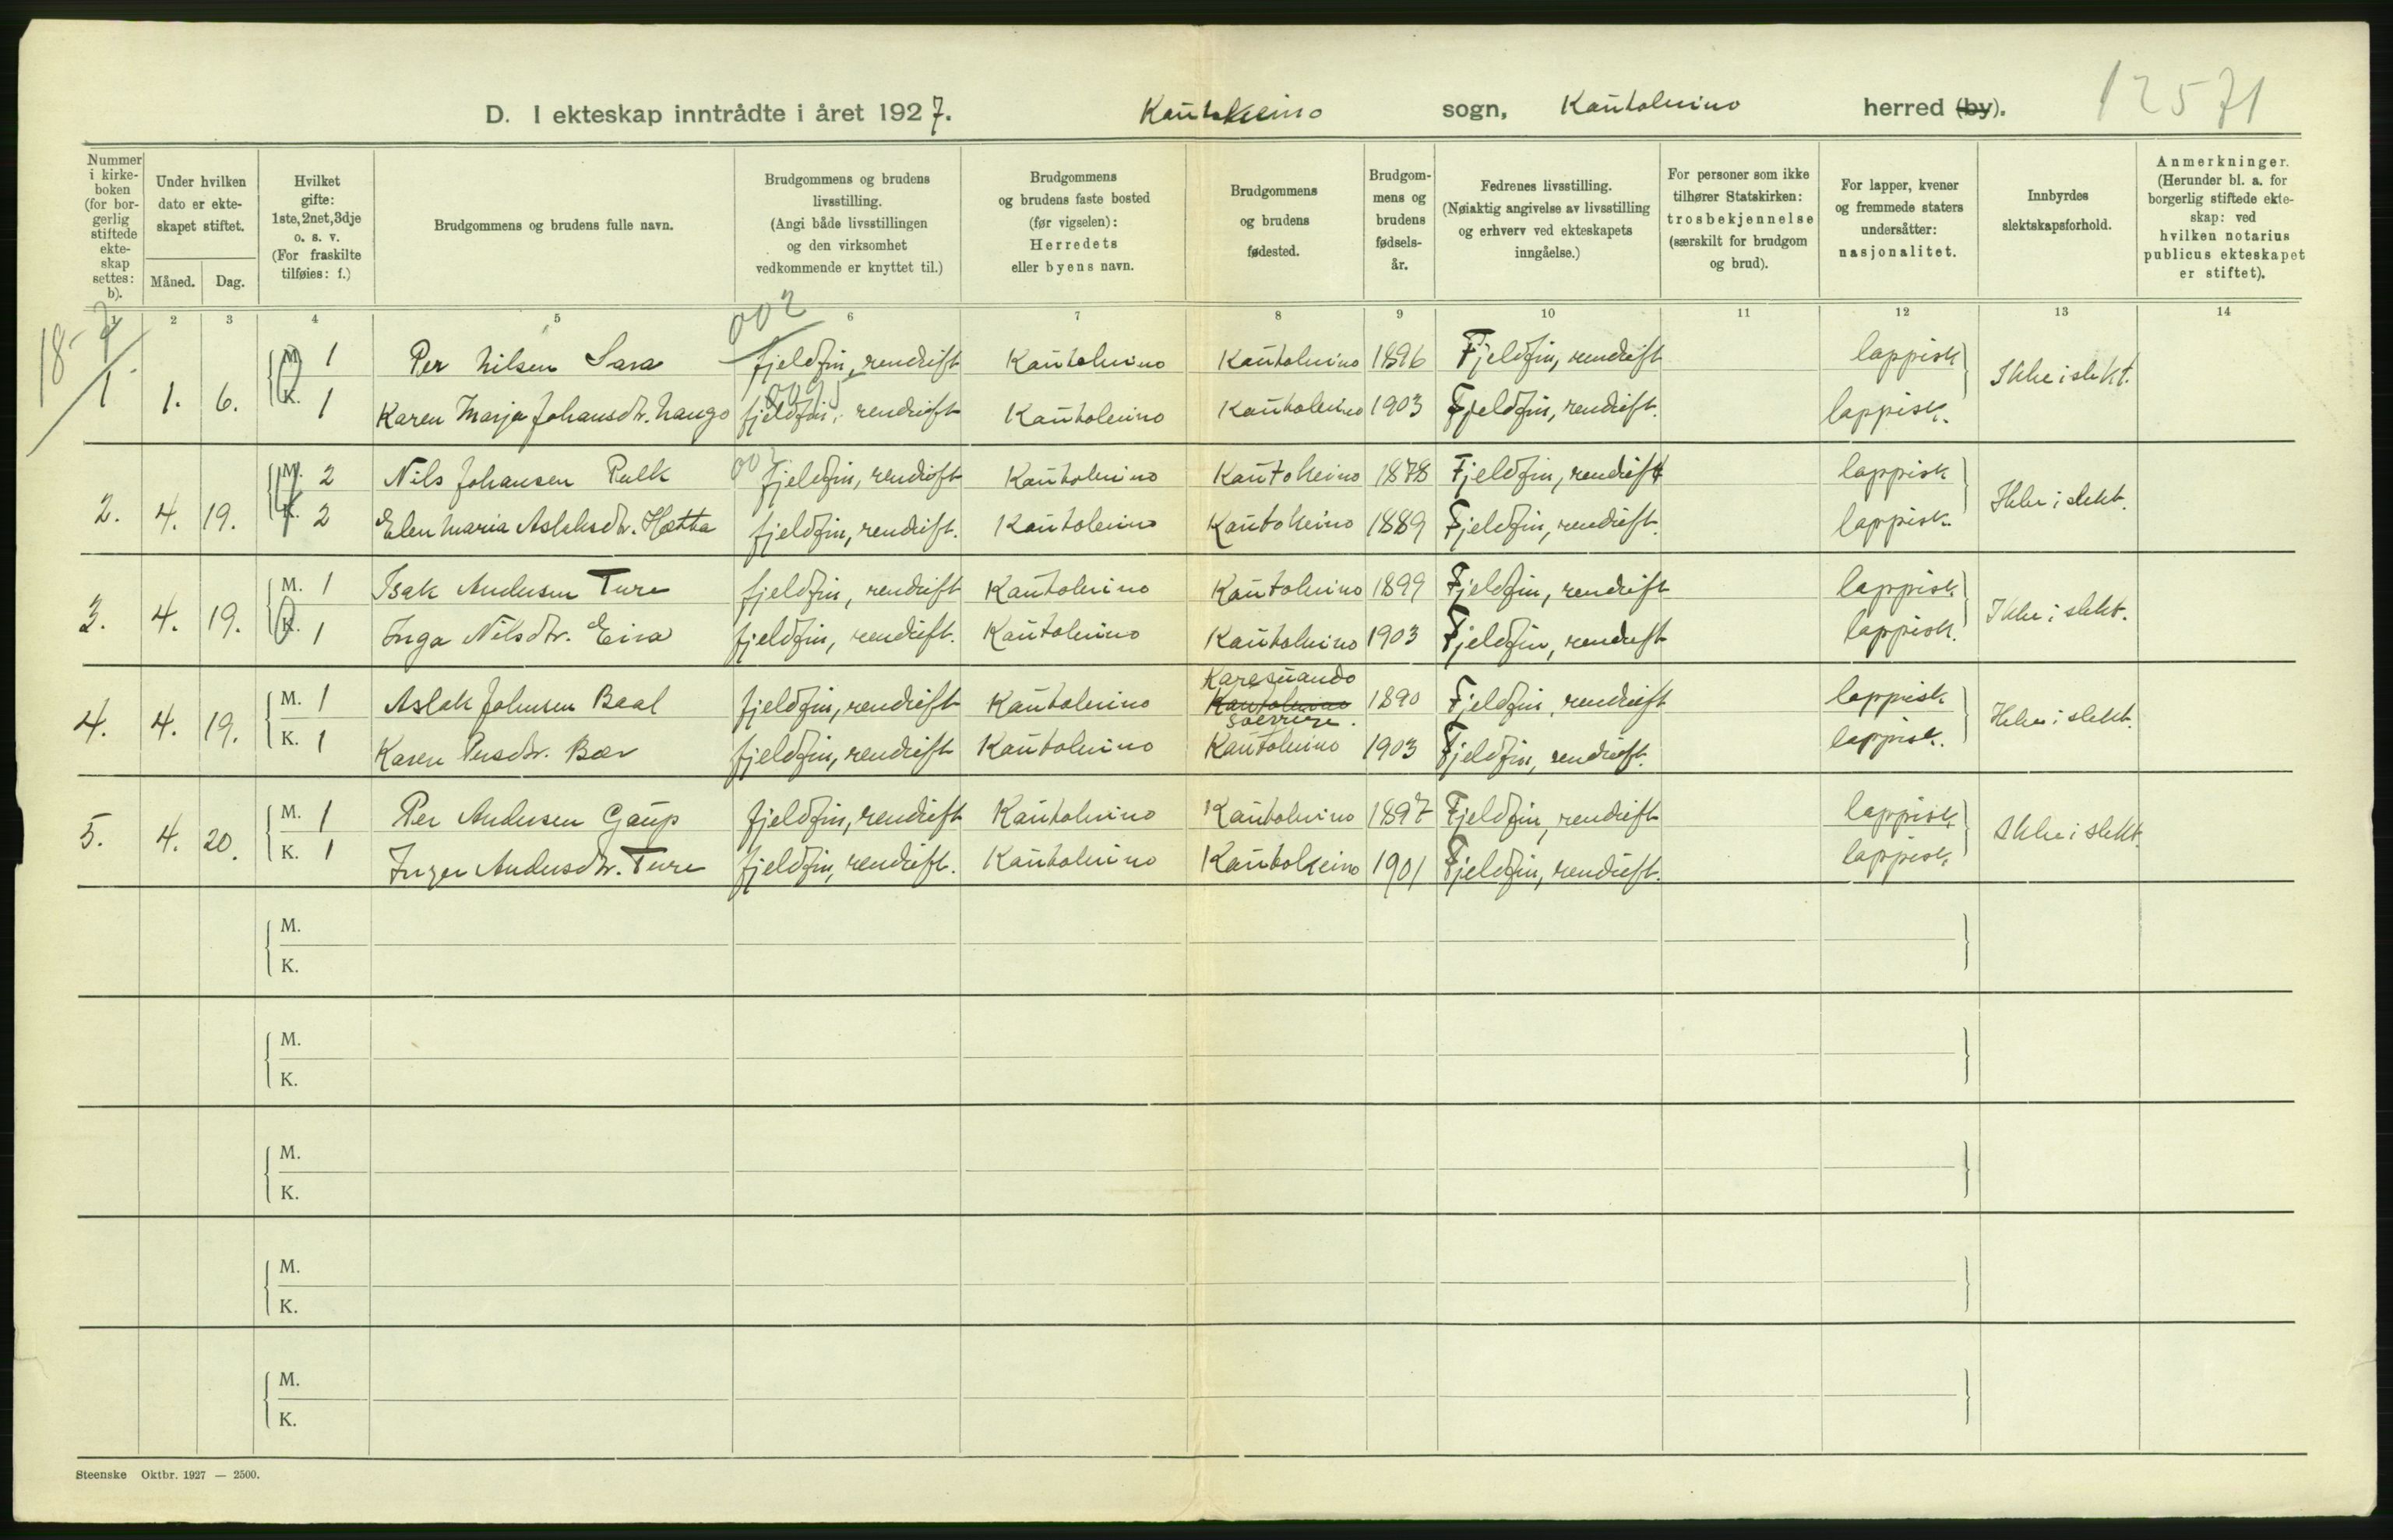 D. I ekteskap inntrådte i året 1927. Kautokeino sogn, Kautokeino herred (by).
12571
Nummer i kirkeboken (for borgerlig stiftede ekteskap settes: b).
Under hvilken dato er ekteskapet stiftet.
Måned. Dag.
Hvilket gifte: 1ste, 2net, 3dje o. s. v. (For fraskilte tilføies: f.)
Brudgommens og brudens fulle navn.
Brudgommens og brudens livsstilling. (Angi både livsstillingen og den virksomhet vedkommende er knyttet til.)
Brudgommens og brudens faste bosted (før vigselen): Herredets eller byens navn.
Brudgommens og brudens fødested.
Brudgommens og brudens fødselsår.
Fedrenes livsstilling. (Nøiaktig angivelse av livsstilling og erhverv ved ekteskapets inngåelse.)
For personer som ikke tilhører Statskirken: trosbekjennelse (særskilt for brudgom og brud).
For lapper, kvener og fremmede staters undersåtter: nasjonalitet.
Innbyrdes slektskapsforhold.
Anmerkninger. (Herunder bl. a. for borgerlig stiftede ekteskap: ved hvilken notarius publicus ekteskapet er stiftet).
1 2 3 4 5 6 7 8 9 10 11 12 13 14
002
M. 1 Per Nilsen Sara fjeldfin, rendrift Kautokeino Kautokeino 1896 Fjeldfin, rendrift lappisk
1 1. 6. Ikke i slekt.
K. 1 Karen Marja Johansdtr. Nango fjeldfin, rendrift Kautokeino Kautokeino 1903 Fjeldfin, rendrift. lappisk.
002
M. 2 Nils Johansen Pulk fjeldfin, rendrift Kautokeino Kautokeino 1878 Fjeldfin, rendrift lappisk
2. 4. 19. Ikke i slekt.
K. 2 Elen Maria Aslaksdtr. Hætta fjeldfin, rendrift. Kautokeino Kautokeino 1889 Fjeldfin, rendrift. lappisk.
M. 1 Isak Andersen Ture fjeldfin, rendrift Kautokeino Kautokeino 1899 Fjeldfin, rendrift lappisk
3. 4. 19. Ikke i slekt.
K. 1 Inga Nilsdtr. Eira fjeldfin, rendrift. Kautokeino Kautokeino 1903 Fjeldfin, rendrift lappisk.
Karesuando
M. 1 Aslak Johnsen Baal fjeldfin, rendrift Kautokeino Kautokeino 1890 Fjeldfin, rendrift lappisk
4. 4. 19. Ikke i slekt.
K. 1 Karen Persdtr. Bær fjeldfin, rendrift Kautokeino Kautokeino 1903 Fjeldfin, rendrift. lappisk.
M. 1 Per Andersen Gaup fjeldfin, rendrift Kautokeino Kautokeino 1897 Fjeldfin, rendrift lappisk
5. 4. 20. Ikke i slekt.
K. 1 Inger Andersdtr. Ture fjeldfin, rendrift. Kautokeino Kautokeino 1901 Fjeldfin, rendrift. lappisk.
M.
K.
M.
K.
M.
K.
M.
K.
M.
K.
Steenske Oktbr. 1927 — 2500.